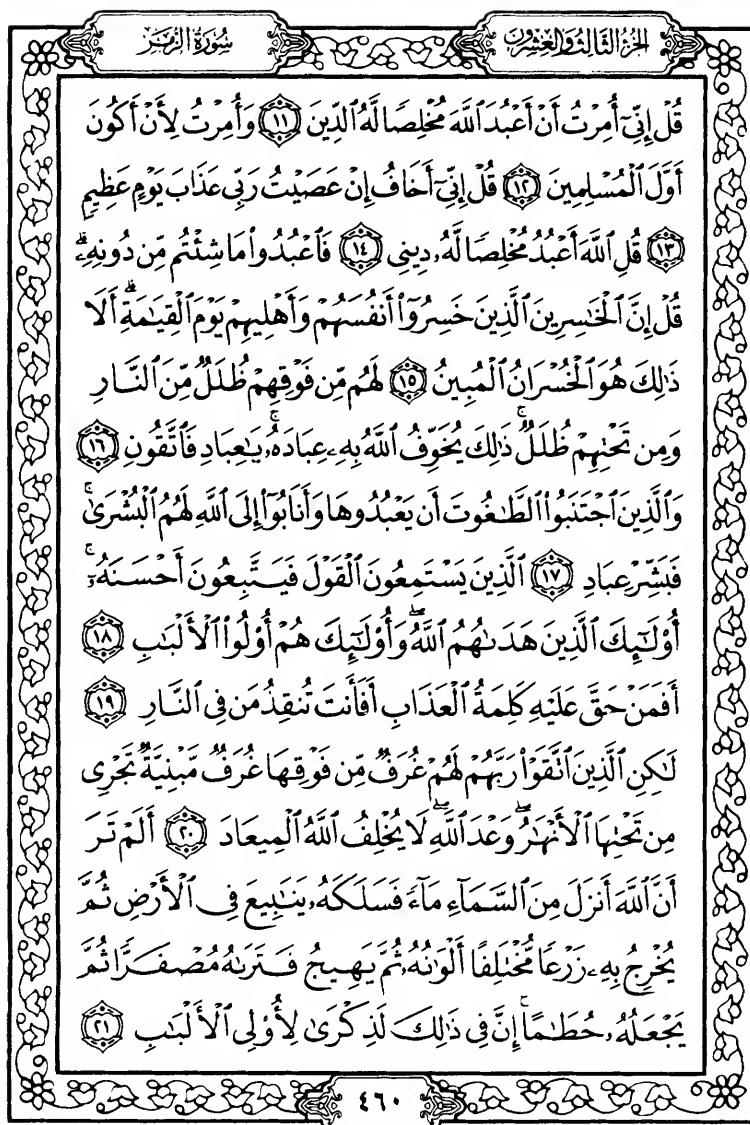 الجزء الثالث والعشرون سورة الزمر
قُلْ إِنِّىٓ أُمِرْتُ أَنْ أَعْبُدَ ٱللَّهَ مُخْلِصًا لَّهُ ٱلدِّينَ ١١ وَأُمِرْتُ لِأَنْ أَكُونَ
أَوَّلَ ٱلْمُسْلِمِينَ ١٢ قُلْ إِنِّىٓ أَخَافُ إِنْ عَصَيْتُ رَبِّى عَذَابَ يَوْمٍ عَظِيمٍ
١٣ قُلِ ٱللَّهَ أَعْبُدُ مُخْلِصًا لَّهُۥ دِينِى ١٤ فَٱعْبُدُوا۟ مَا شِئْتُم مِّن دُونِهِۦۗ
قُلْ إِنَّ ٱلْخَٰسِرِينَ ٱلَّذِينَ خَسِرُوٓا۟ أَنفُسَهُمْ وَأَهْلِيهِمْ يَوْمَ ٱلْقِيَٰمَةِۗ أَلَا
ذَٰلِكَ هُوَ ٱلْخُسْرَانُ ٱلْمُبِينُ ١٥ لَهُم مِّن فَوْقِهِمْ ظُلَلٌ مِّنَ ٱلنَّارِ
وَمِن تَحْتِهِمْ ظُلَلٌۚ ذَٰلِكَ يُخَوِّفُ ٱللَّهُ بِهِۦ عِبَادَهُۥۚ يَٰعِبَادِ فَٱتَّقُونِ ١٦
وَٱلَّذِينَ ٱجْتَنَبُوا۟ ٱلطَّٰغُوتَ أَن يَعْبُدُوهَا وَأَنَابُوٓا۟ إِلَى ٱللَّهِ لَهُمُ ٱلْبُشْرَىٰۚ
فَبَشِّرْ عِبَادِ ١٧ ٱلَّذِينَ يَسْتَمِعُونَ ٱلْقَوْلَ فَيَتَّبِعُونَ أَحْسَنَهُۥٓۚ
أُو۟لَٰٓئِكَ ٱلَّذِينَ هَدَىٰهُمُ ٱللَّهُۖ وَأُو۟لَٰٓئِكَ هُمْ أُو۟لُوا۟ ٱلْأَلْبَٰبِ ١٨
أَفَمَنْ حَقَّ عَلَيْهِ كَلِمَةُ ٱلْعَذَابِ أَفَأَنتَ تُنقِذُ مَن فِى ٱلنَّارِ ١٩
لَٰكِنِ ٱلَّذِينَ ٱتَّقَوْا۟ رَبَّهُمْ لَهُمْ غُرَفٌ مِّن فَوْقِهَا غُرَفٌ مَّبْنِيَّةٌ تَجْرِى
مِن تَحْتِهَا ٱلْأَنْهَٰرُۖ وَعْدَ ٱللَّهِۖ لَا يُخْلِفُ ٱللَّهُ ٱلْمِيعَادَ ٢٠ أَلَمْ تَرَ
أَنَّ ٱللَّهَ أَنزَلَ مِنَ ٱلسَّمَآءِ مَآءً فَسَلَكَهُۥ يَنَٰبِيعَ فِى ٱلْأَرْضِ ثُمَّ
يُخْرِجُ بِهِۦ زَرْعًا مُّخْتَلِفًا أَلْوَٰنُهُۥ ثُمَّ يَهِيجُ فَتَرَىٰهُ مُصْفَرًّا ثُمَّ
يَجْعَلُهُۥ حُطَٰمًاۚ إِنَّ فِى ذَٰلِكَ لَذِكْرَىٰ لِأُو۟لِى ٱلْأَلْبَٰبِ ٢١
٤٦٠